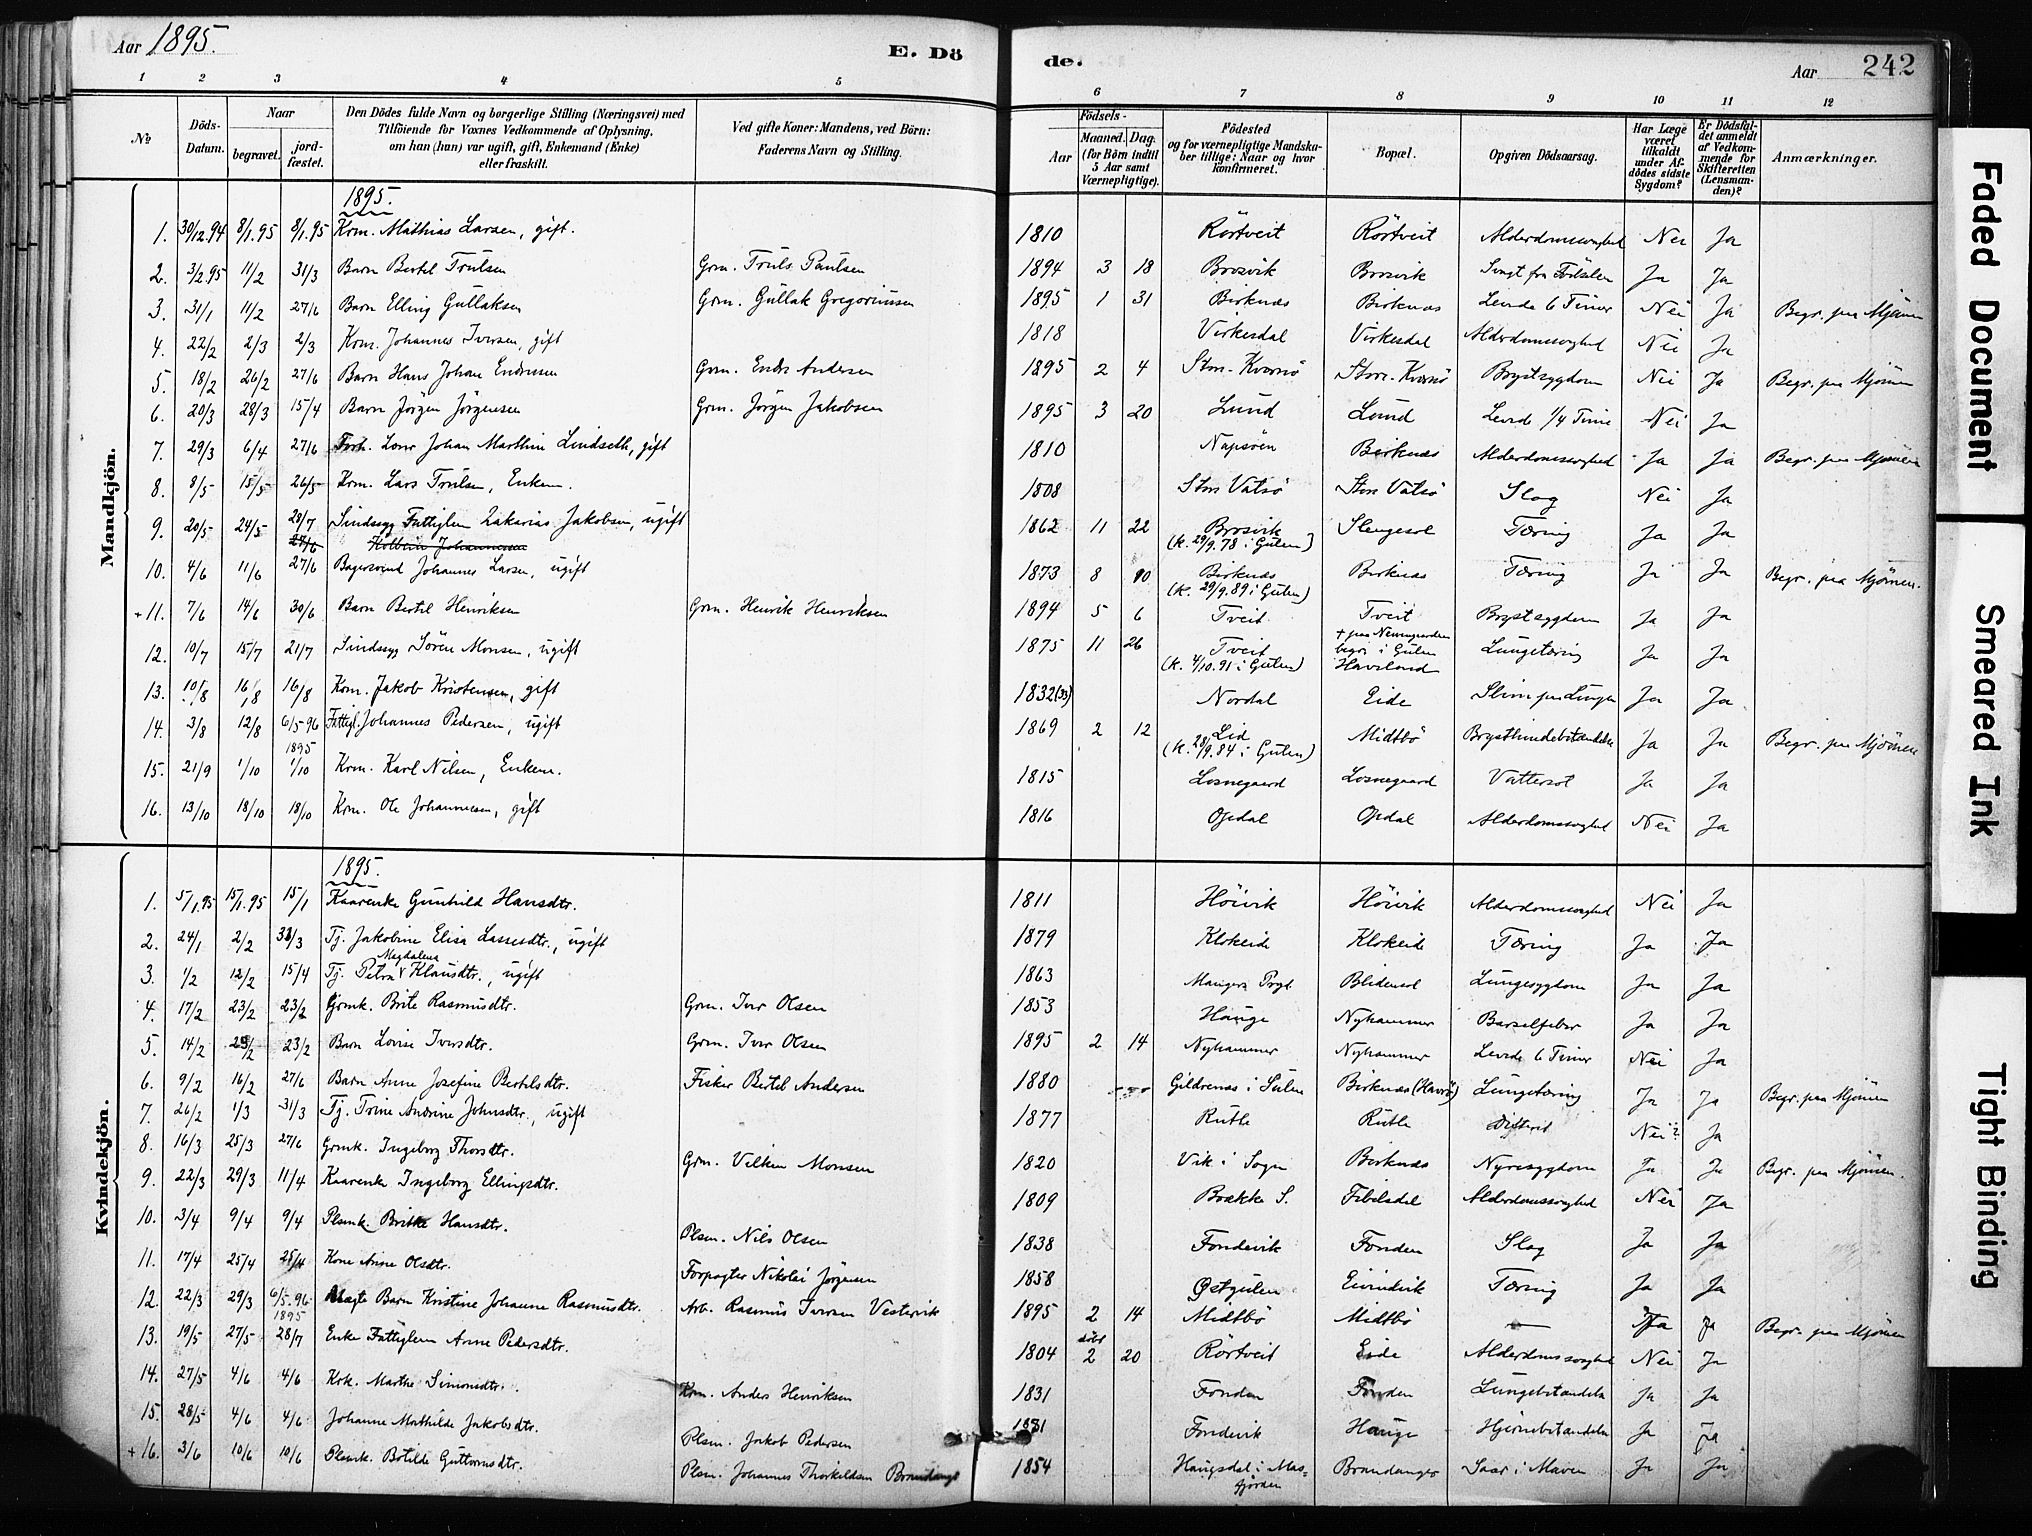 Aar 1895.
E. Dö
de.
Aar 242
1 2 3 4 5 6 7 8 9 10 11 12
№
Döds-Datum.
Naar
begravet.
jord-fæstet.
Den Dödes fulde Navn og borgerlige Stilling (Næringsvei) med
Tilföiende for Voxnes Vedkommende af Oplysning,
om han (hun) var ugift, gift, Enkemand (Enke)
eller fraskilt.
Ved gifte Koner: Mandens, ved Börn:
Faderens Navn og Stilling.
Födsels-
Aar
Maaned. Dag.
(for Börn indtil 5 Aar samt Værnepligtige).
Födested
og for værnepligtige Mandska-
ber tillige: Naar og hvor
konfirmeret.
Bopæl.
Opgiven Dödsaarsag.
Har Læge været tilkaldt under Afdödes sidste Sygdom?
Er Dödsfaldet anmeldt af Vedkommende for Skifteretten (Lensmanden)?
Anmærkninger.
Mandkjön.
1895.
1. 30/12.94 8/1.95 8/1.95 Krm. Mathias Larsen, gift. 1810 Rörtveit Rörtveit Alderdomssvaghed Nei Ja
2. 3/2.95 11/2 31/3 Barn Bertel Trulsen Grm. Truls Paulsen 1894 3 18 Brosvik Brosvik Svagt fra Födselen Ja Ja
3. 31/1 11/2 27/6 Barn Elling Gullaksen Grm. Gullak Gregoriussen 1895 1 31 Birknæs Birknæs Levede 6 Timer Nei Ja Begr. paa Mjömen
4. 22/2 2/3 2/3 Krm. Johannes Iversen, gift 1818 Virkesdal Virkesdal Alderdomssvaghed Nei Ja
5. 18/2 26/2 27/6 Barn Hans Johan Endresen Grm. Endre Andersen 1895 2 4 Store-Kvernö Store-Kvernö Brystsygdom Nei Ja Begr. paa Mjömen
6. 20/3 28/3 15/4 Barn Jörgen Jörgensen Grm. Jörgen Jakobsen 1895 3 20 Lund Lund Levede 1/4 Time Nei Ja
7. 29/3 6/4 27/6 Johan Marthin Lindseth, gift 1810 Birknæs Alderdomssvaghed Ja Ja Begr. paa Mjömen
8. 8/5 15/5 26/5 Krm. Lars Trulsen, Enkem. 1808 Store Vatsö Store Vatsö Slag Nei Ja
9. 20/5 24/5 28/7 Sindssyg Fattiglem Zakarias Jakobsen, ugift 1862 11 22 Brosvik Slengesol Tæring Ja Ja
27/6 (k. 29/9.78 i Gulen)
10. 4/6 11/6 27/6 Bagersvend Johannes Larsen, ugift 1873 8 10 Birknæs Birknæs Tæring Ja Ja Begr. paa Mjömen.
(k. 29/9.89 i Gulen)
+11. 7/6 14/6 30/6 Barn Bertel Henriksen Grm. Henrik Henriksen 1894 5 6 Tveit Tveit Brystsygdom Ja Ja
12. 10/7 15/7 21/7 Sindssyg Sören Monsen, ugift 1875 11 26 Tveit + paa Neumgaarden begr. i Gulen Haveland Lungetæring Ja Ja
(k. 4/10.91 i Gulen)
13. 10/8 16/8 16/8 Krm. Jakob Kristensen, gift 1832(33) Nordal Eide Slim paa Lungen Ja Ja
14. 3/8 12/8 6/5-96 Fattigl. Johannes Pedersen, ugift 1869 2 12 Lid Midtbö Brysthindebetændelse Ja Ja Begr. paa Mjömen
(k. 28/9.84 i Gulen)
1895
15. 21/9 1/10 1/10 Krm. Karl Nilsen, Enkem. 1815 Losnegaard Losnegaard Vattersot Ja Ja
16. 13/10 18/10 18/10 Krm. Ole Johannesen, gift 1816 Opdal Opdal Alderdomssvaghed Nei Ja
Kvindekjön.
1895.
1. 5/1.95 15/1.95 15/1 Kaarenke Gunhild Hansdtr. 1811 Höivik Höivik Alderdomssvaghed Nei Ja
2. 24/1 2/2 31/3 Tj. Jakobine Elisa Lassesdtr., ugift 1879 Klokeide Klokeide Tæring Ja Ja
Magdalena
3. 1/2 12/2 15/4 Tj. Petra Klausdtr., ugift 1863 Mangers Prgl. Blidensol Lungesygdom Ja Ja
4. 17/2 23/2 23/2 Grmk. Brite Rasmusdtr. Grm. Iver Olsen 1853 Hauge Nyhammer Barselfeber Ja Ja
5. 14/2 23/2 23/2 Barn Lovise Iversdtr. Grm. Iver Olsen 1895 2 14 Nyhammer Nyhammer Levede 6 Timer Nei Ja
6. 9/2 16/2 27/6 Barn Anne Josefine Bertelsdtr. Fisker Bertel Andersen 1880 Gildrenæs i Sulen Birknæs (Havrö) Lungetæring Ja Ja Begr. paa Mjömen
7. 26/2 1/3 31/3 Tj. Trine Andrine Johnsdtr., ugift 1877 Rutle Rutle Difterit Nei? Ja
8. 16/3 25/3 27/6 Grmk. Ingeborg Thorsdtr. Grm. Vilken Monsen 1820 Vik i Sogn Birknæs Nyresygdom Ja Ja Begr. paa Mjömen.
9. 22/3 29/3 11/4 Kaarenke Ingeborg Ellingsdtr. 1809 Brække S. Fibelsdal Alderdomssvaghed Nei Ja
10. 3/4 9/4 9/4 Plsmk. Britke Hansdtr. Plsm. Nils Olsen 1838 Fondevik Fonden Slag Ja Ja
11. 17/4 25/4 25/4 Kone Anne Olsdtr. Forpagter Nikolai Jörgensen 1858 Östgulen Eivindvik Tæring Ja Ja
12. 22/3 29/3 6/5.96 Uægte Barn Kristine Johanne Rasmusdtr. Arb. Rasmus Iversen Vestervik 1895 2 14 Midtbö Midtbö — Ja Ja Begr. paa Mjömen
1895 döbt
13. 19/5 27/5 28/7 Enke Fattiglem Anne Pedersdtr. 1804 2 20 Rörtveit Eide Alderdomssvaghed Nei Ja
14. 27/5 4/6 4/6 Krk. Marthe Simonsdtr. Krm. Anders Henriksen 1831 Fonden Fonden Lungebetændelse Ja Ja
15. 28/5 4/6 4/6 Johanne Mathilde Jakobsdtr. Plsm. Jakob Pedersen 1881 Fondevik Hauge Hjernebetændelse Ja Ja
+16. 3/6 10/6 10/6 Plsmk. Botilde Guttormsdtr. Plsm. Johannes Thorkeldsen Brandanger 1854 Haugsdal i Mas-
fjorden Brandanger Saar i Maven Ja Ja
Faded Document
Smeared Ink
Tight Binding